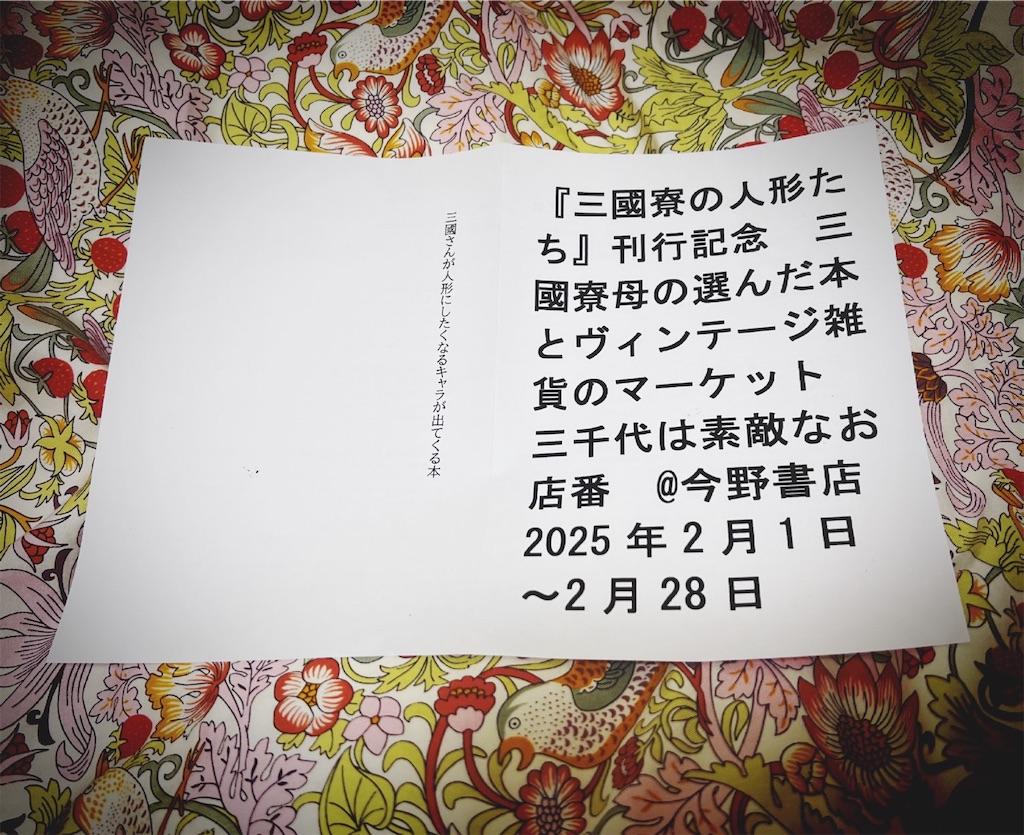 『三國寮の人形た
ち』刊行記念　三
國寮母の選んだ本
とヴィンテージ雑
貨のマーケット
三千代は素敵なお
店番　@今野書店
2025 年 2 月 1 日
～2 月 28 日
三國さんが人形にしたくなるキャラが出てくる本